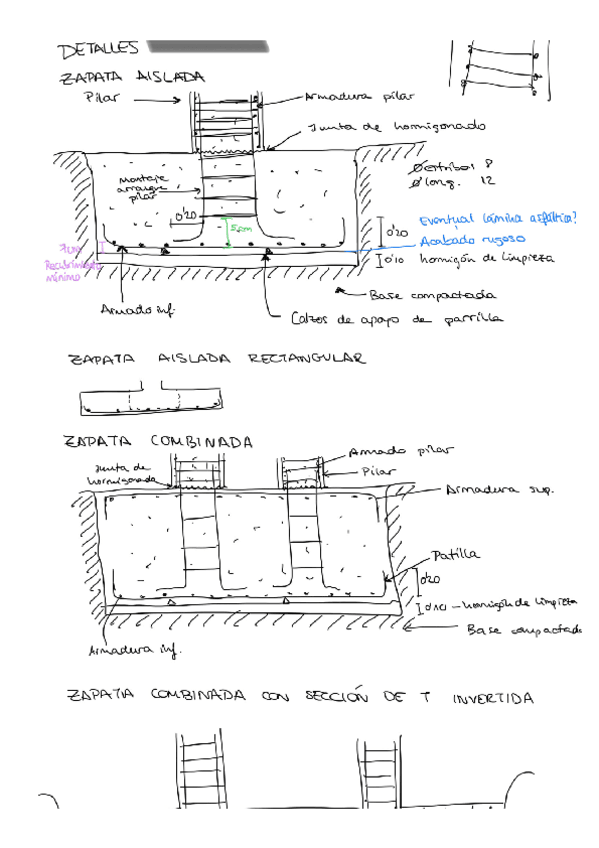 DETALLES
ZAPATA AISLADA
Pilar
Armadura pilar
Junta de hormigonado
Øestribos 8
Ølong. 12
montaje
arranque
pilar
0'20
5cm
0'20
Eventual lámina asfáltica?
Acabado rugoso
7cm
Recubrimiento
mínimo
0'10 hormigón de limpieza
Base compactada
Armado inf.
Calzos de apoyo de parrilla
ZAPATA AISLADA RECTANGULAR
ZAPATA COMBINADA
Armado pilar
Junta de
hormigonado
Pilar
Armadura sup.
Patilla
0'20
0'10 - hormigón de limpieza
Base compactado
Armadura inf.
ZAPATA COMBINADA CON SECCIÓN DE T INVERTIDA